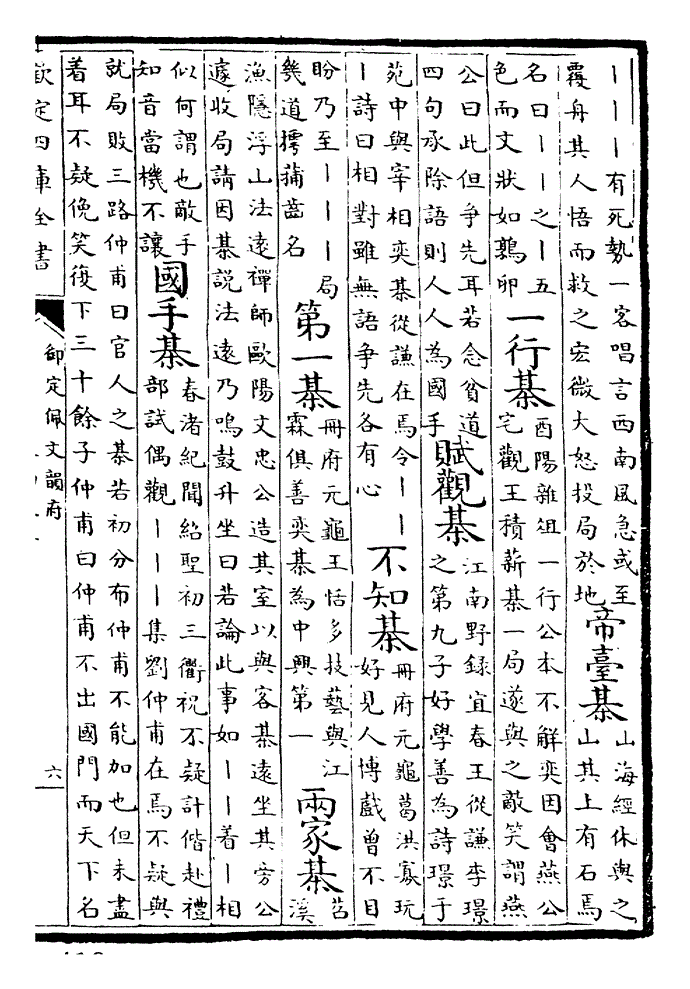 丨丨丨有死勢一客唱言西南風急或至
覆舟其人悟而救之宏微大怒投局於地
帝臺棊
山海經休與之
山其上有石焉
名曰丨丨之丨五
色而文狀如鶉卵
一行棊
酉陽雜俎一行公本不解奕因會燕公
宅觀王積薪棊一局遂與之敵笑謂燕
公曰此但争先耳若念貧道
四句承除語則人人為國手
賦觀棊
江南野録宜春王從謙李璟
之第九子好學善為詩璟于
苑中與宰相奕棊從謙在焉令丨丨
丨詩曰相對雖無語争先各有心
不知棊
冊府元龜葛洪寡玩
好見人博戲曾不目
盼乃至丨丨丨局
幾道摴蒱齒名
第一棊
冊府元龜王恬多技藝與江
霖俱善奕棊為中興第一
兩家棊
苕
溪
漁隱浮山法遠禪師歐陽文忠公造其室以與客棊遠坐其旁公
遽收局請因棊説法遠乃鳴鼓升坐曰若論此事如丨丨着丨相
似何謂也敵手
知音當機不讓
國手棊
春渚紀聞紹聖初三衢祝不疑計偕赴禮
部試偶觀丨丨丨集劉仲甫在焉不疑與
就局敗三路仲甫曰官人之棊若初分布仲甫不能加也但未盡
着耳不疑俛笑復下三十餘子仲甫曰仲甫不出國門而天下名
欽定四庫全書
御定佩文韻府
六